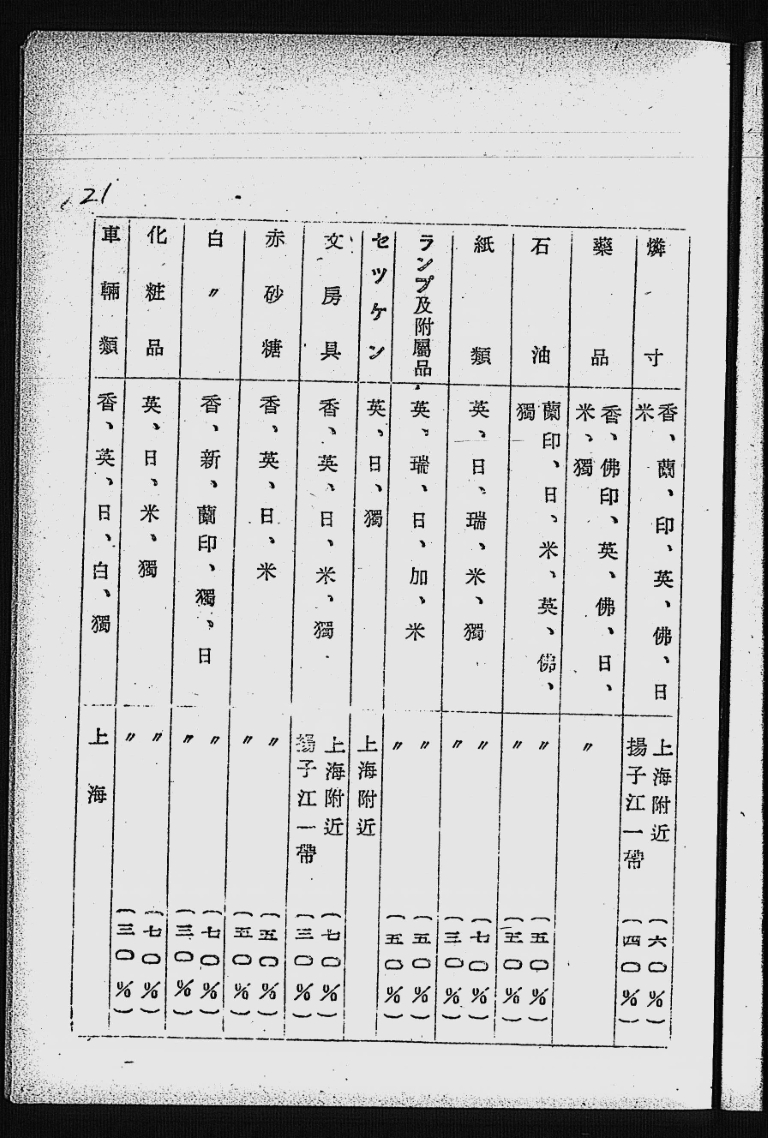 21
燐寸
香、蘭、印、英、佛、日
米
上海附近（六〇％）
揚子江一帶（四〇％）
藥品
香、佛印、英、佛、日、
米、獨
〃
石油
蘭印、日、米、英、佛、
獨
〃（五〇％）
〃（五〇％）
紙類
英、日、瑞、米、獨
〃（七〇％）
〃（三〇％）
ランプ及附屬品
英、瑞、日、加、米
〃（五〇％）
〃（五〇％）
セツケン
英、日、獨
上海附近
文房具
香、英、日、米、獨
上海附近（七〇％）
揚子江一帶（三〇％）
赤砂糖
香、英、日、米
〃（五〇％）
〃（五〇％）
白〃
香、新、蘭印、獨、日
〃（七〇％）
〃（三〇％）
化粧品
英、日、米、獨
〃（七〇％）
〃（三〇％）
車輛類
香、英、日、白、獨
上海